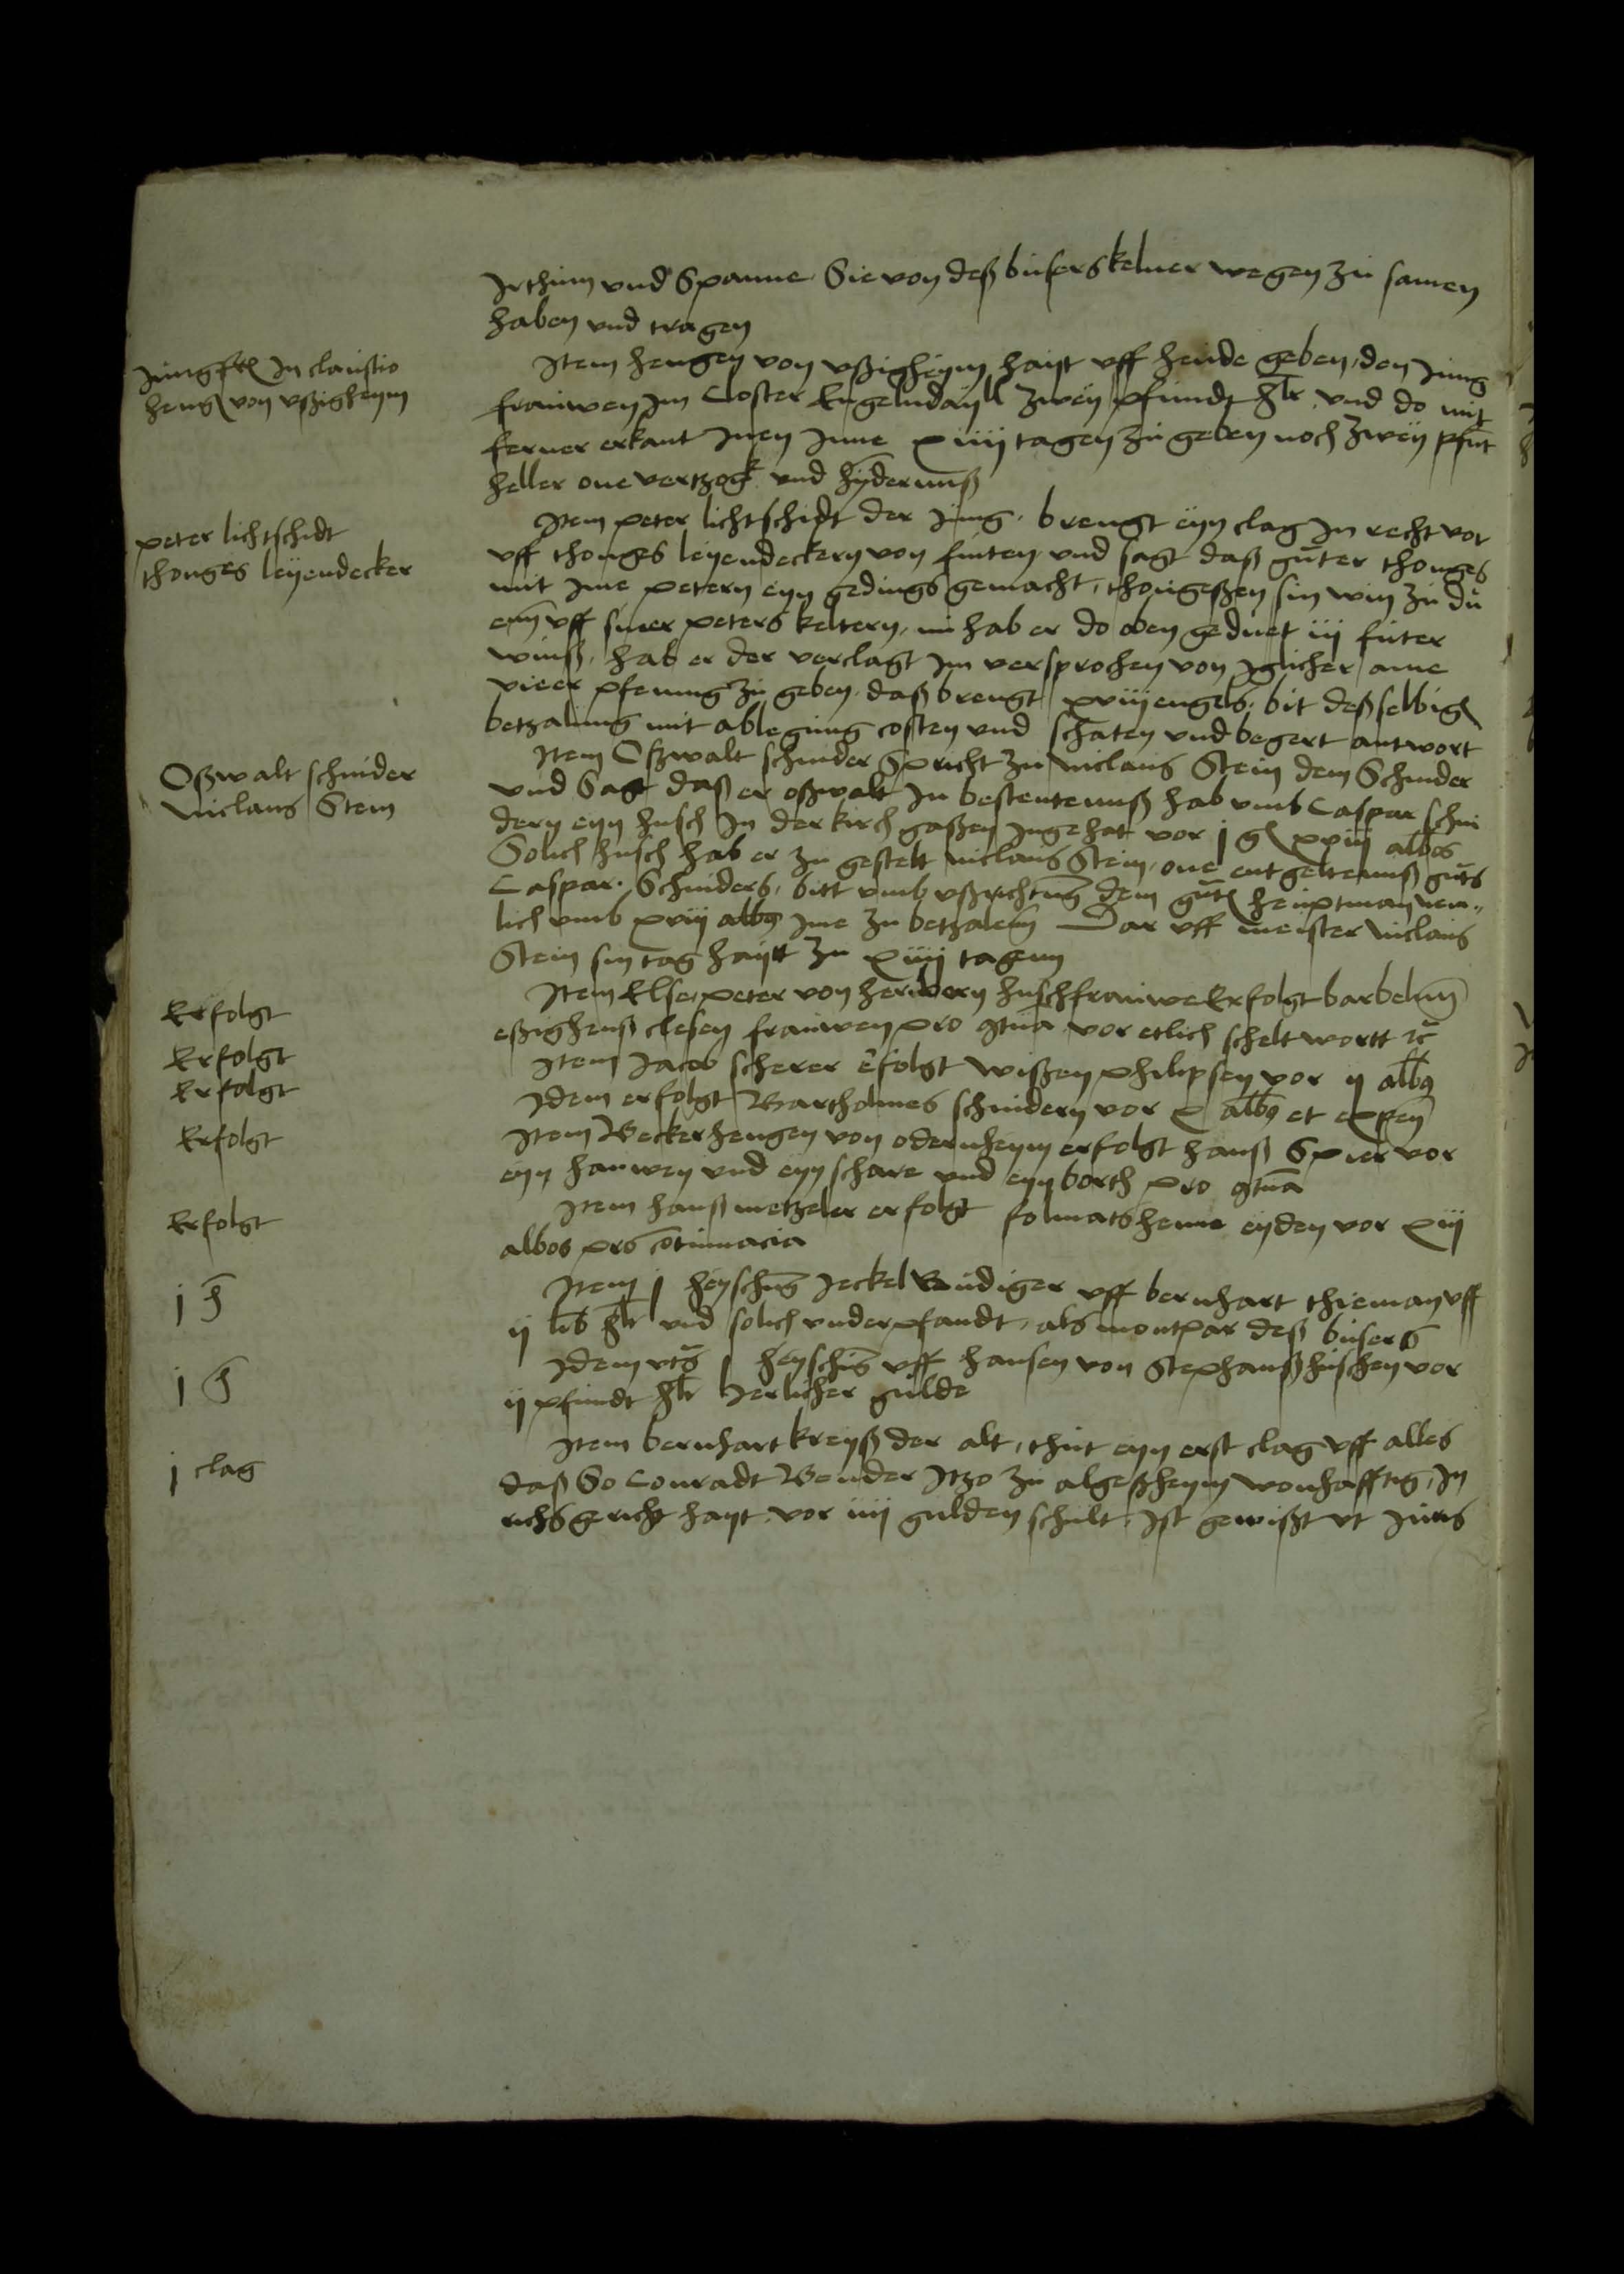 Irthum und Spanne Sie von deß busers kelner wegen zu samen
haben und tragen
Jungfr In claustro
heng von ußigheym
Item hengen von ußigheym hait uff heude geben den Jung
frauwen Im Closter Engelndayll zwey pfundt hlr und do mit
ferner erkant Inen Inne xiiii tagen zu geben noch zwey pfūt
heller one vertzogk und hyderniß
peter lichtschidt
thonges leyendecker
Item peter lichtschidt der Jung brengt eyn clag In recht vor
uff thonges leyendeckern von finten und sagt daß guter thonges
mit Ime petern eyn gedings gemacht, thongeßen sin win zu du
enn uff siner peters keltern, nu hab er do oben geduet iii futer
winß, hab er der verclagt Im versprochen von Iglicher ame
vieer pfennig zu geben, daß brengt xviii engels, bit deß selbig
betzalung mit ablegung costen und schaten und begert antwort
Oßwalt schnider
Niclaus Stein
Item Oßwalt schnider Spricht zu niclaus Stein dem Schnider
und Sagt daß er oßwalt In bestentenuß hab umb Caspar schni
dern eyn husch In der kirch gaßen Ingehat vor j g xviii albos
Solich husch hab er zu gestelt niclaus Stein, one entgeltenuß guts
Caspar Schniders, bitt umb ußrichtung dem gut heuptman nem„
lich umb xvii albos Ime zu betzalenn Dar uff meister niclaus
Stein sin tag haytt zu xiiii tagenn
Erfolgt
Item Else, peter von herbern huschfrauwe Erfolgt barbeln
eßighenß clesen frauwen pro gtua vor etlich schelt wortt rc
Erfolgt
Item Jacob scherer efolgt wißen philipsen vor ij albos
Erfolgt
Idem erfolgt Bartholmes schnidern vor x albos et expen
Erfolgt
Item Becker hengen von odernheym erfolgt hanß Spier vor
eyn hauwen und eyn schare und eyn borth pro gtua
Erfolgt
Item hanß metzeler erfolgt folmats henne eyden vor xiii
albos prs cotumacia
j h
Item j heyschung Jeckel Rudiger uff bernhart thieman uff
ij lib hlr und solich underpfandt, als montpar deß busers
j h
Idem utg j heyschung uff hansen von Stephanßhuschen vor
ij pfundt hlr Jerlicher gulde
j clag
Item bernhart kreyß der alt, thut eyn erst clag uff alles
daß So Conradt Bender Itzo zu algeßheym wonhafftig, In
richs gericht hayt vor iiii gulden schult, Ist gewißt ut Juris